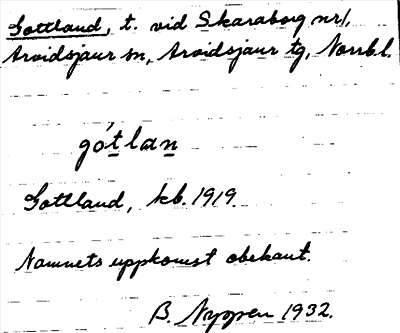 Gottland, t. vid Skaraborg nr 1,
Arvidsjaur sn, Arvidsjaur tg, Norrb.l.
gó't lan
Gottland, kb. 1919.
Namnets uppkomst obekant.
B. Nygren 1932.